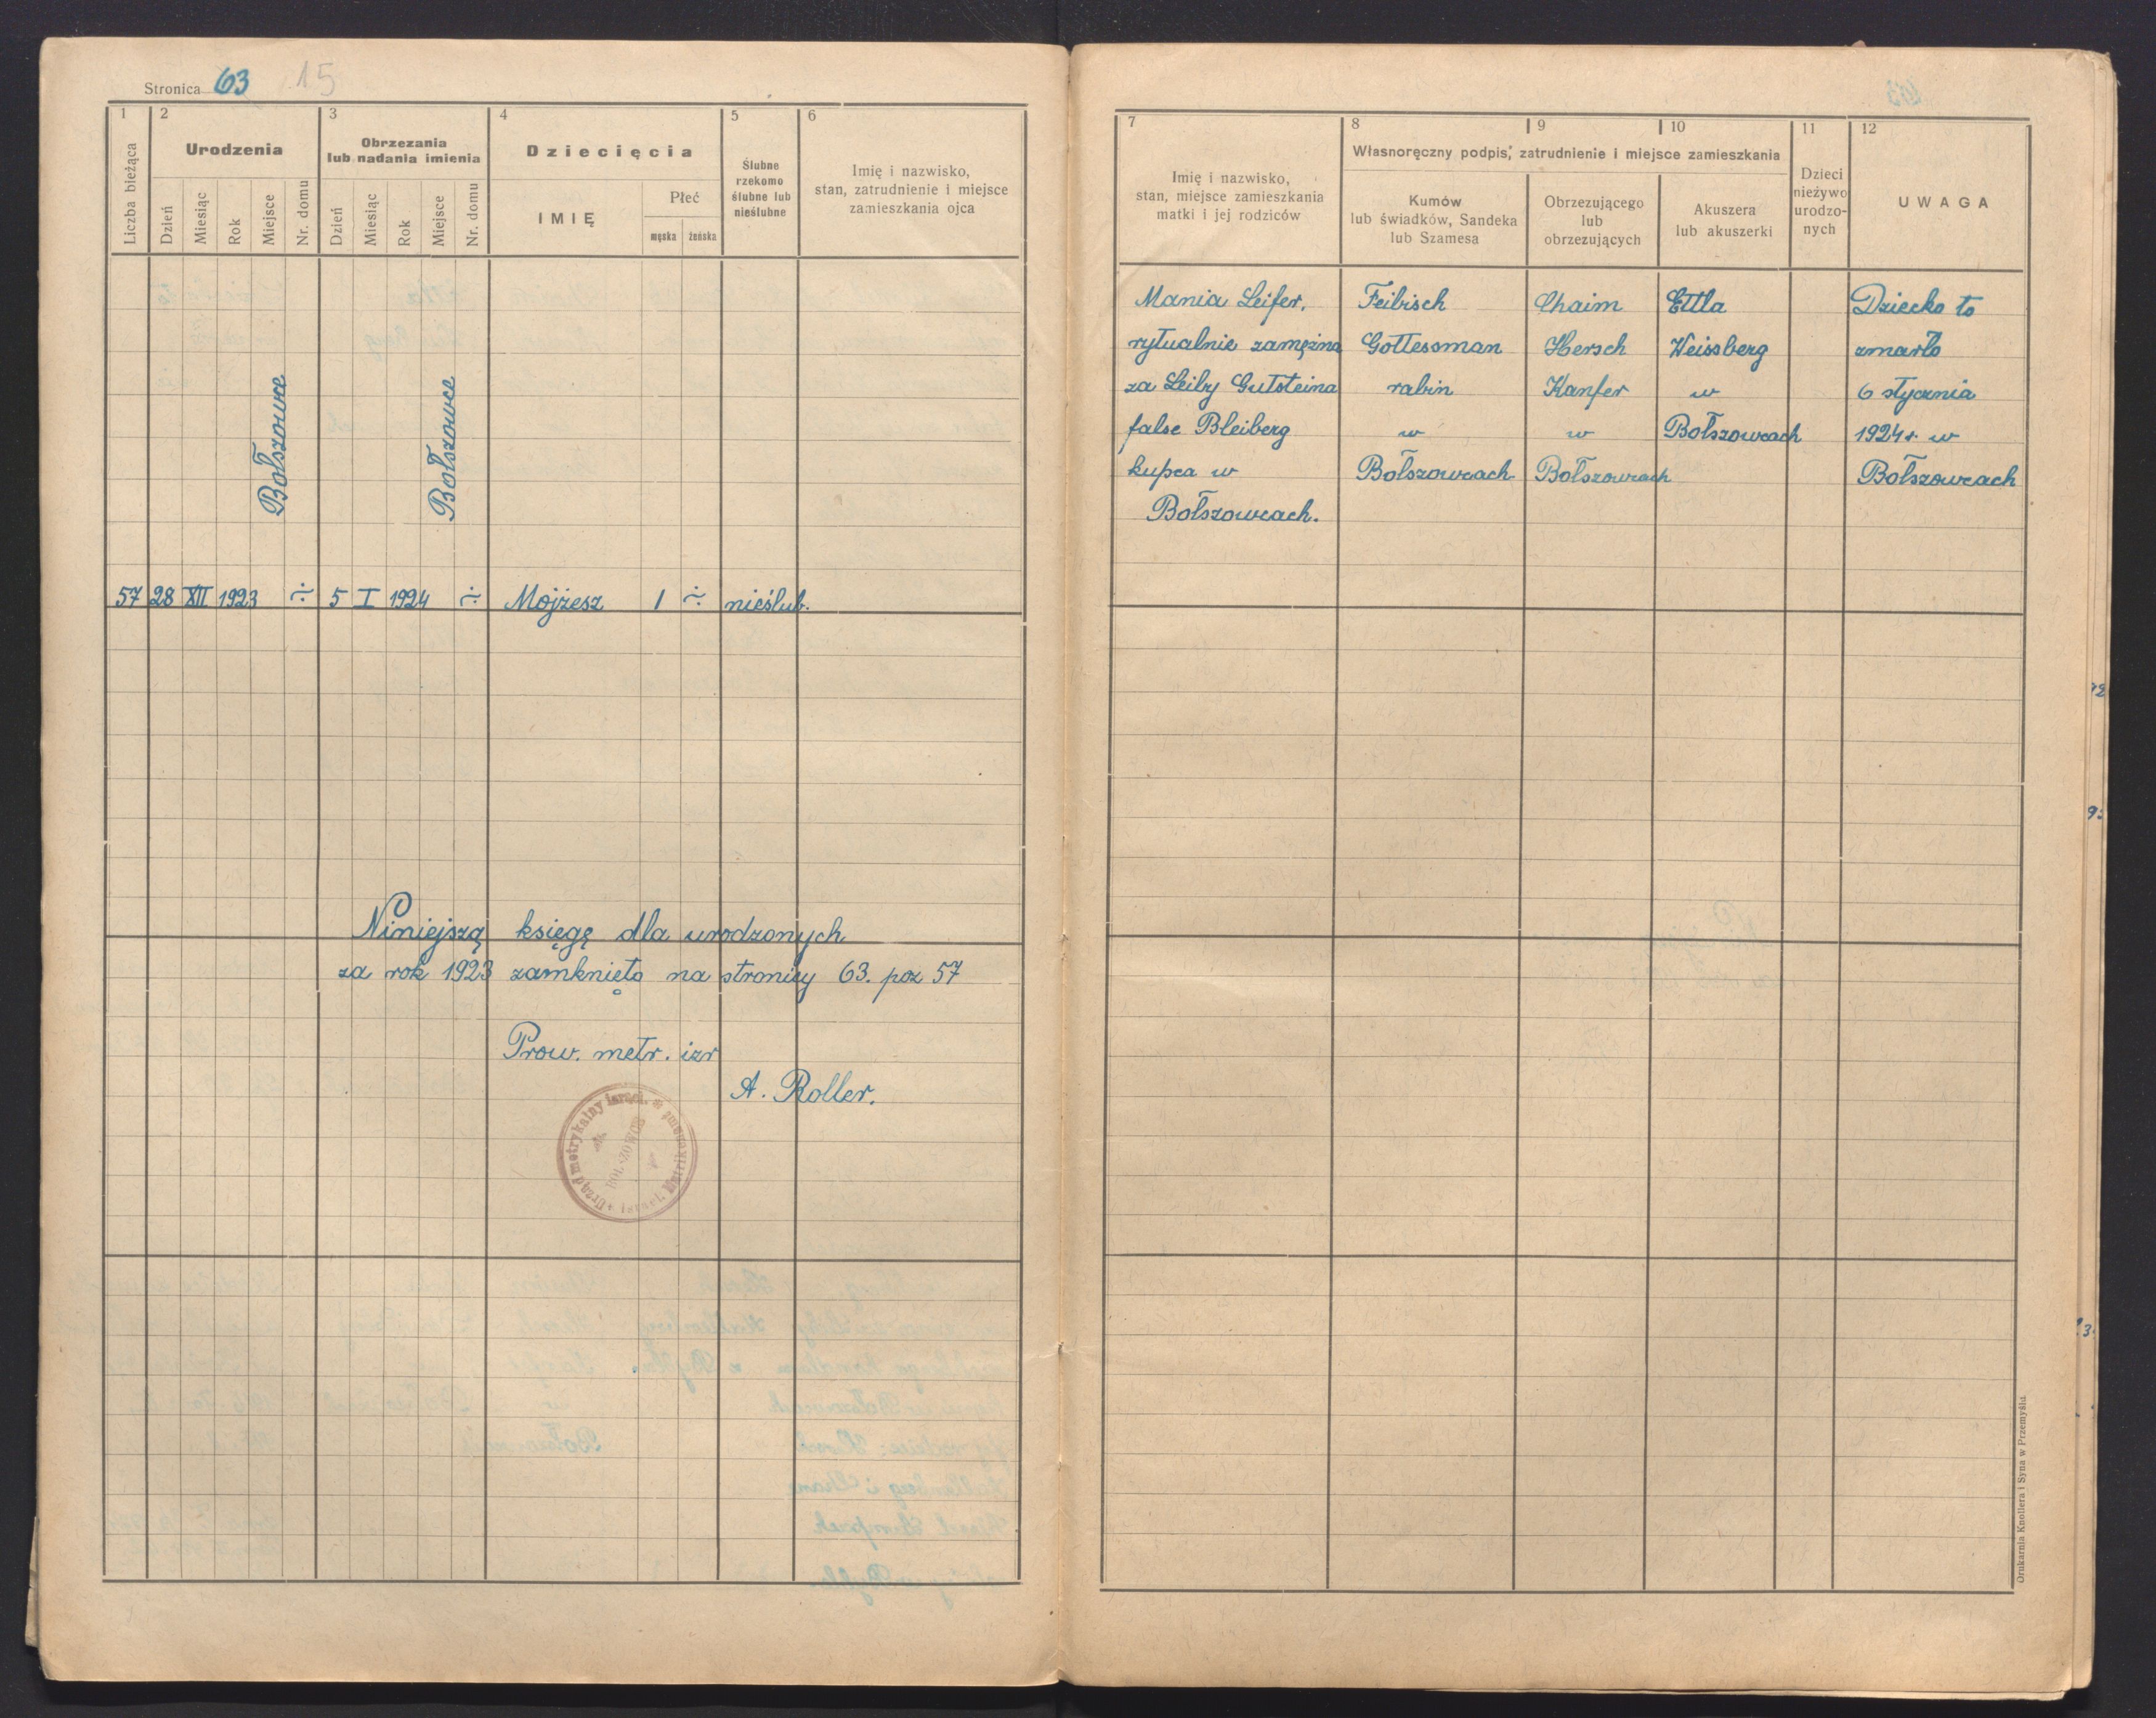 Stronica 63 15
1 2 3 4 5 6
Liczba bieżąca
Urodzenia
Dzień Miesiąc Rok Miejsce Nr. domu
Obrzezania
lub nadania imienia
Dzień Miesiąc Rok Miejsce Nr. domu
Dziecięcia
IMIĘ
Płeć
męska żeńska
Ślubne
rzekomo
ślubne lub
nieślubne
Imię i nazwisko,
stan, zatrudnienie i miejsce
zamieszkania ojca
Bołszowce
Bołszowce
57 28 XII 1923 ÷ 5 I 1924 ÷ Mojżesz 1 ÷ nieślub.
Niniejszą księgę dla urodzonych
za rok 1923 zamknięto na stronicy 63. poz 57
Prow. metr. izr
A. Roller.
Urząd metrykalny izrael.
BOŁSZOWCE
7 8 9 10 11 12
Imię i nazwisko,
stan, miejsce zamieszkania
matki i jej rodziców
Własnoręczny podpis, zatrudnienie i miejsce zamieszkania
Kumów
lub świadków, Sandeka
lub Szamesa
Obrzezującego
lub
obrzezujących
Akuszera
lub akuszerki
Dzieci
nieżywo
urodzo-
nych
UWAGA
Mania Leifer,
rytualnie zamężna
za Leiby Gutsteina
false Bleiberg
kupca w
Bołszowcach.
Feibisch
Gottessman
rabin
w
Bołszowcach
Chaim
Hersch
Kanfer
w
Bołszowcach
Ettla
Weissberg
w
Bołszowcach
Dziecko to
zmarło
6 stycznia
1924 r. w
Bołszowcach
Drukarnia Knollera i Syna w Przemyślu